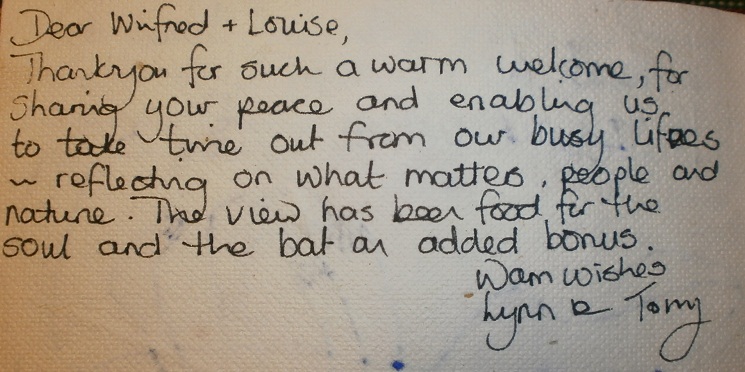 Dear Winfred + Louise,
Thankyou for such a warm welcome, for
sharing your peace and enabling us
to take time out from our busy lives
~ reflecting on what matters, people and
nature. The view has been food for the
soul and the bat an added bonus.
Warm wishes
Lynn & Tony